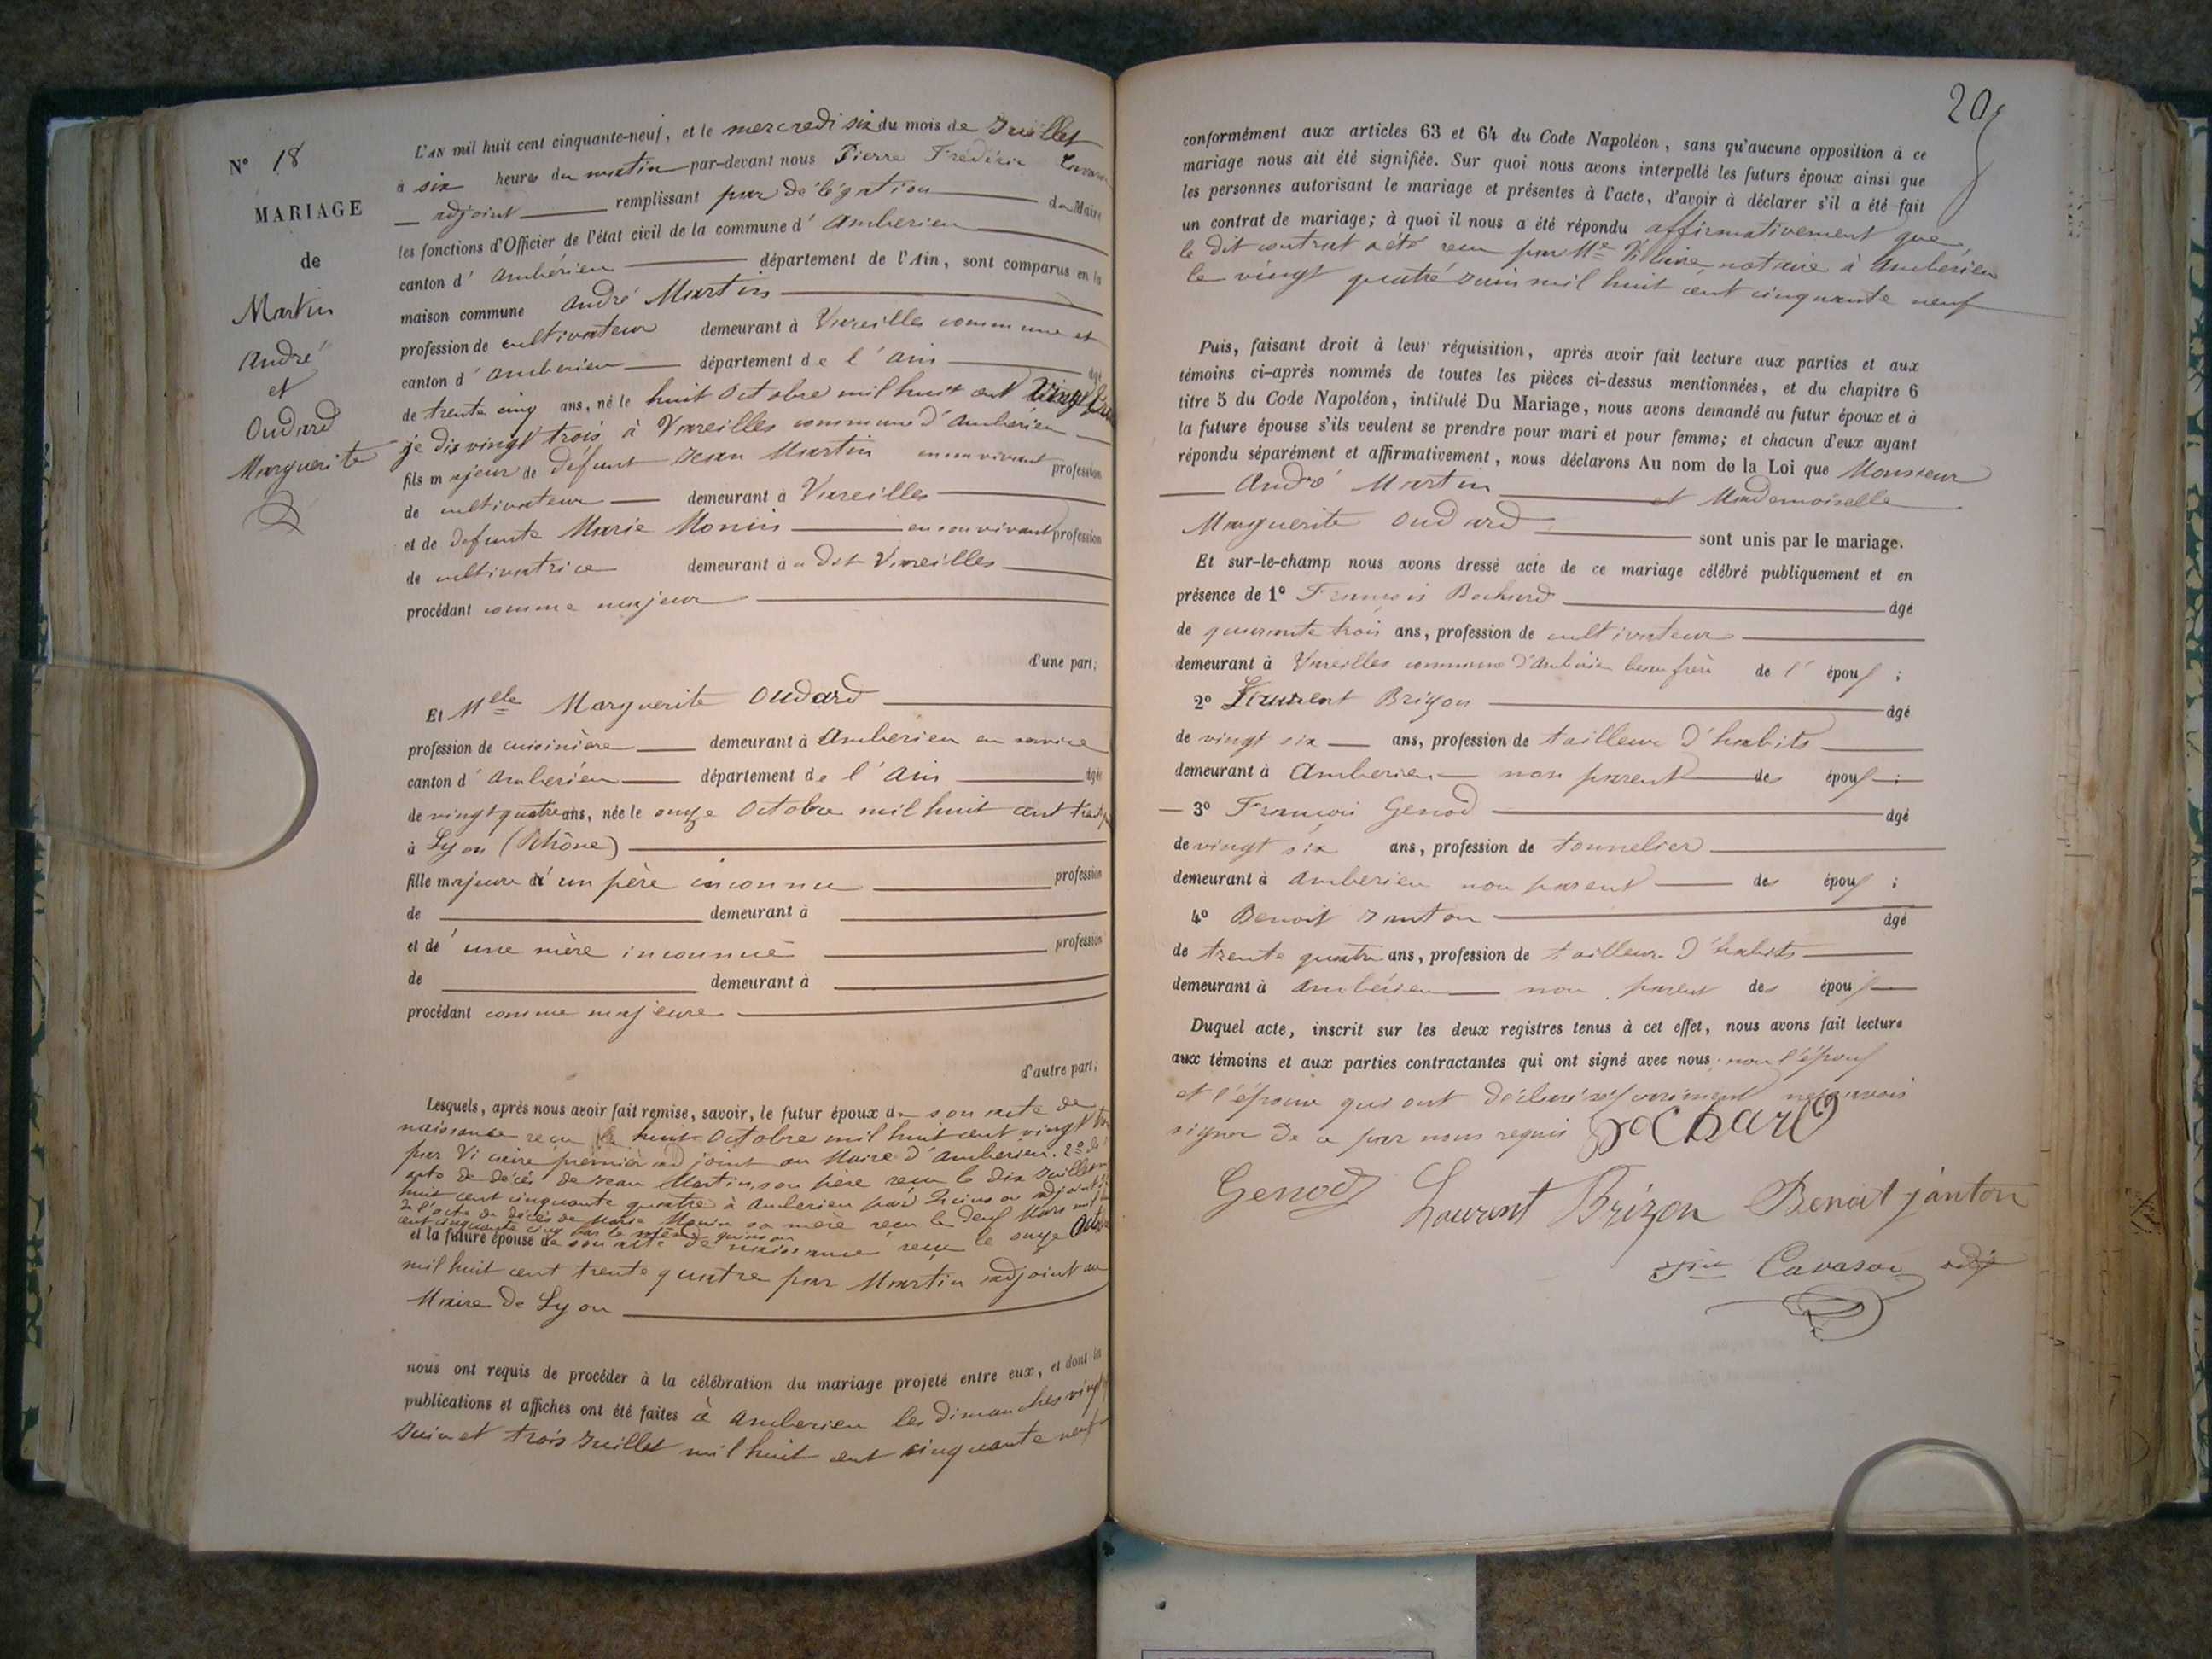 N° 18
MARIAGE
de
Martin
André
et
Oudard
Marguerite
L'AN mil huit cent cinquante-neuf, et le mercredi six du mois de Juillet
à six heures du matin par-devant nous Pierre Frédéric
adjoint remplissant par délégation du Maire
les fonctions d'Officier de l'état civil de la commune d'Amberieu
canton d'Ambérieu département de l'Ain, sont comparus en la
maison commune André Martin
profession de cultivateur demeurant à Vareilles commune et
canton d'Amberieu département de l'Ain âgé
de trente cinq ans, né le huit Octobre mil huit cent vingt
je dis vingt trois, à Vareilles commune d'Ambérieu
fils majeur de défunt Jean Martin en son vivant profession
de cultivateur demeurant à Vareilles
et de defunte Marie Monin en son vivant profession
de cultivatrice demeurant à u dit Vareilles
procédant comme majeur
d'une part;
Et Melle Marguerite Oudard
profession de cuisinière demeurant à Amberieu en service
canton d'Amberieu département de l'Ain âgée
de vingt quatre ans, née le onze Octobre mil huit cent
à Lyon (Rhône)
fille majeure d'un père inconnu profession
de demeurant à
et de une mère inconnue profession
de demeurant à
procédant comme majeure
d'autre part;
Lesquels, après nous avoir fait remise, savoir, le futur époux de son acte de
naissance reçu le huit Octobre mil huit cent vingt
par premier adjoint au Maire d'Amberieu. 2° de
acte de décès de Jean Martin, son père reçu le dix Juillet
huit cent cinquante quatre à Amberieu par adjoint
de l'acte de décès de Marie Monin sa mère reçu le deux Mars mil
cent cinquante cinq par le même
et la future épouse de son acte de naissance reçu le onze
mil huit cent trente quatre par Martin adjoint au
Maire de Lyon
nous ont requis de procéder à la célébration du mariage projeté entre eux, et dont les
publications et affiches ont été faites à Amberieu les dimanches vingt
Juin et trois Juillet mil huit cent cinquante neuf
conformément aux articles 63 et 64 du Code Napoléon, sans qu'aucune opposition à ce
mariage nous ait été signifiée. Sur quoi nous avons interpellé les futurs époux ainsi que
les personnes autorisant le mariage et présentes à l'acte, d'avoir à déclarer s'il a été fait
un contrat de mariage; à quoi il nous a été répondu affirmativement que
le dit contrat a été reçu par Me notaire à Ambérieu
le vingt quatre Juin mil huit cent cinquante neuf
Puis, faisant droit à leur réquisition, après avoir fait lecture aux parties et aux
témoins ci-après nommés de toutes les pièces ci-dessus mentionnées, et du chapitre 6
titre 5 du Code Napoléon, intitulé Du Mariage, nous avons demandé au futur époux et à
la future épouse s'ils veulent se prendre pour mari et pour femme; et chacun d'eux ayant
répondu séparément et affirmativement, nous déclarons Au nom de la Loi que Monsieur
André Martin et Mademoiselle
Marguerite Oudard sont unis par le mariage.
Et sur-le-champ nous avons dressé acte de ce mariage célébré publiquement et en
présence de 1° François Bochard âgé
de quarante trois ans, profession de cultivateur
demeurant à Vareilles commune d'Ambérieu beau frère de l'époux;
2° Laurent Brizon âgé
de vingt six ans, profession de tailleur d'habits
demeurant à Amberieu non parent des époux;
3° François Genod âgé
de vingt six ans, profession de tonnelier
demeurant à Amberieu non parent des époux;
4° Benoit Janton âgé
de trente quatre ans, profession de tailleur d'habits
demeurant à Ambérieu non parent des époux
Duquel acte, inscrit sur les deux registres tenus à cet effet, nous avons fait lecture
aux témoins et aux parties contractantes qui ont signé avec nous, non l'époux
et l'épouse qui ont déclaré séparément ne savoir
signer de ce par nous requis Bochard
Genod Laurent Brizon Benoit janton
Cavasou adj